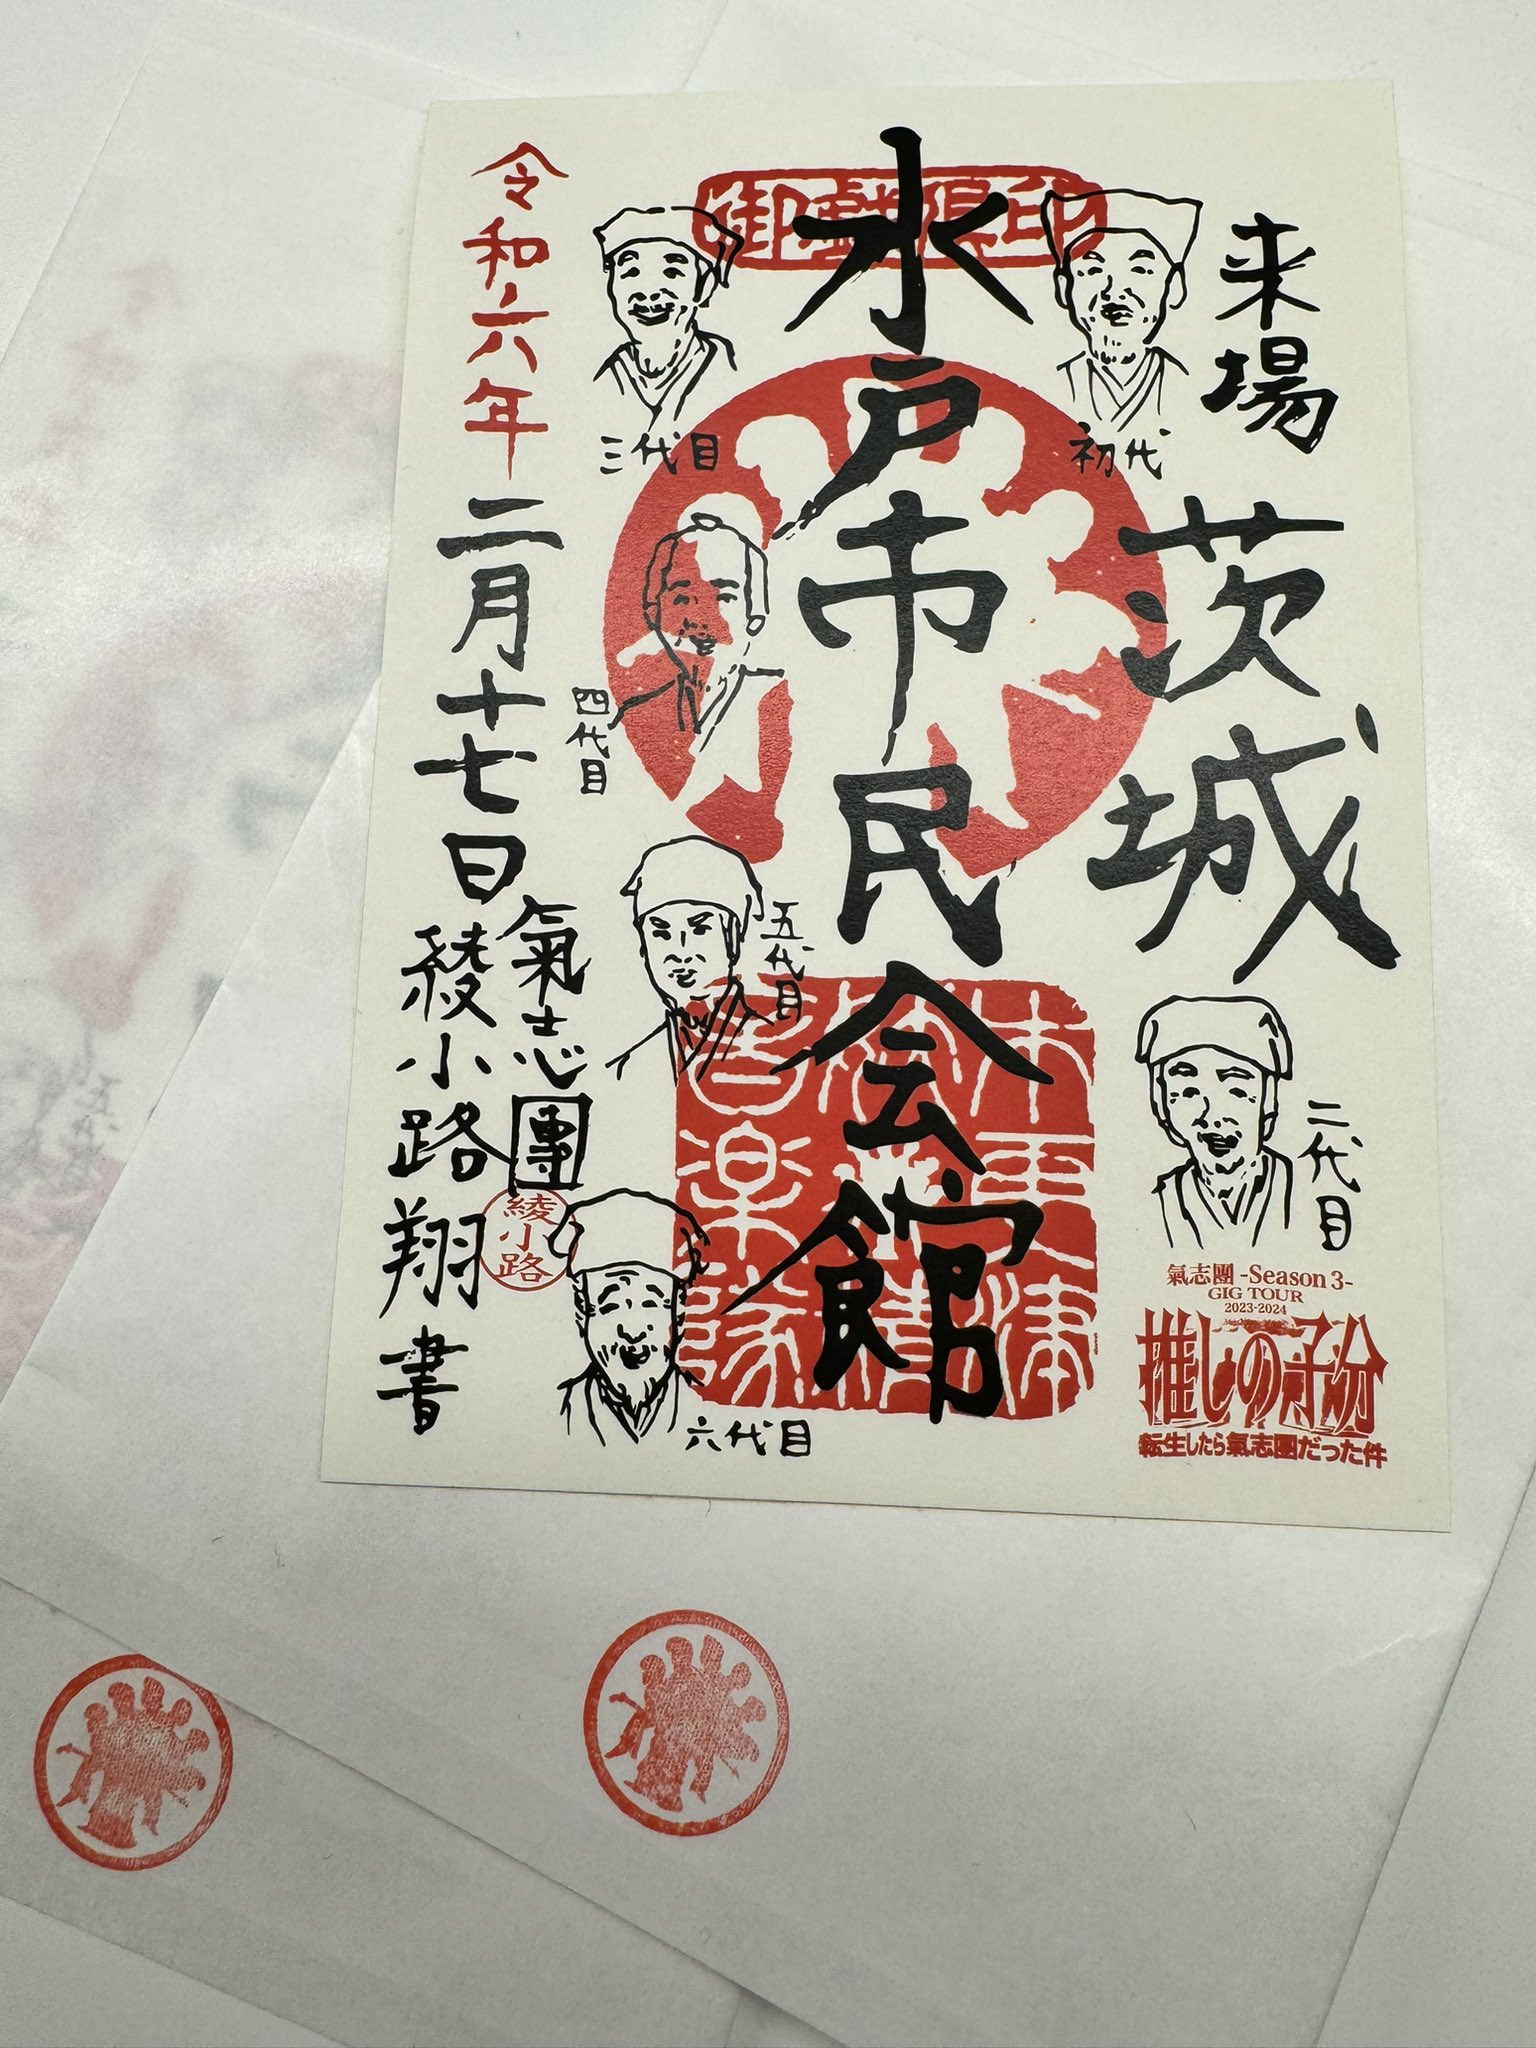 来場
茨城
水戸市民会館
令和六年二月十七日
氣志團
綾小路翔書
綾小路
初代
二代目
三代目
四代目
五代目
六代目
木更津
音楽隊
氣志團 -Season 3-
GIG TOUR
2023-2024
推しの子分
転生したら氣志團だった件